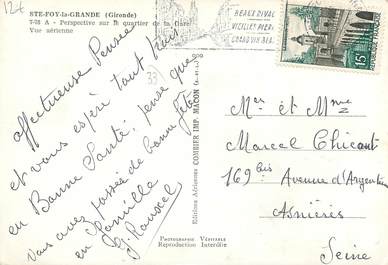 12€
STE-FOY-la-GRANDE (Gironde)
T-78 A - Perspective sur le quartier de la Gare
Vue aérienne
BEAUX RIVAGES
VIEILLES PIERRES
GRANDS VINS
15F
33
affectueuse Pensée
et vous espère tout deux
en Bonne Santé, pense que
Vous avez passés de bonne fête
en famille
G. Rouxel
Editions Aériennes COMBIER IMP. MACON
Photographie Véritable
Reproduction Interdite
Mer et Mme
Marcel Chicaut
169 bis Avenue d'Argenteuil
Asnières
Seine